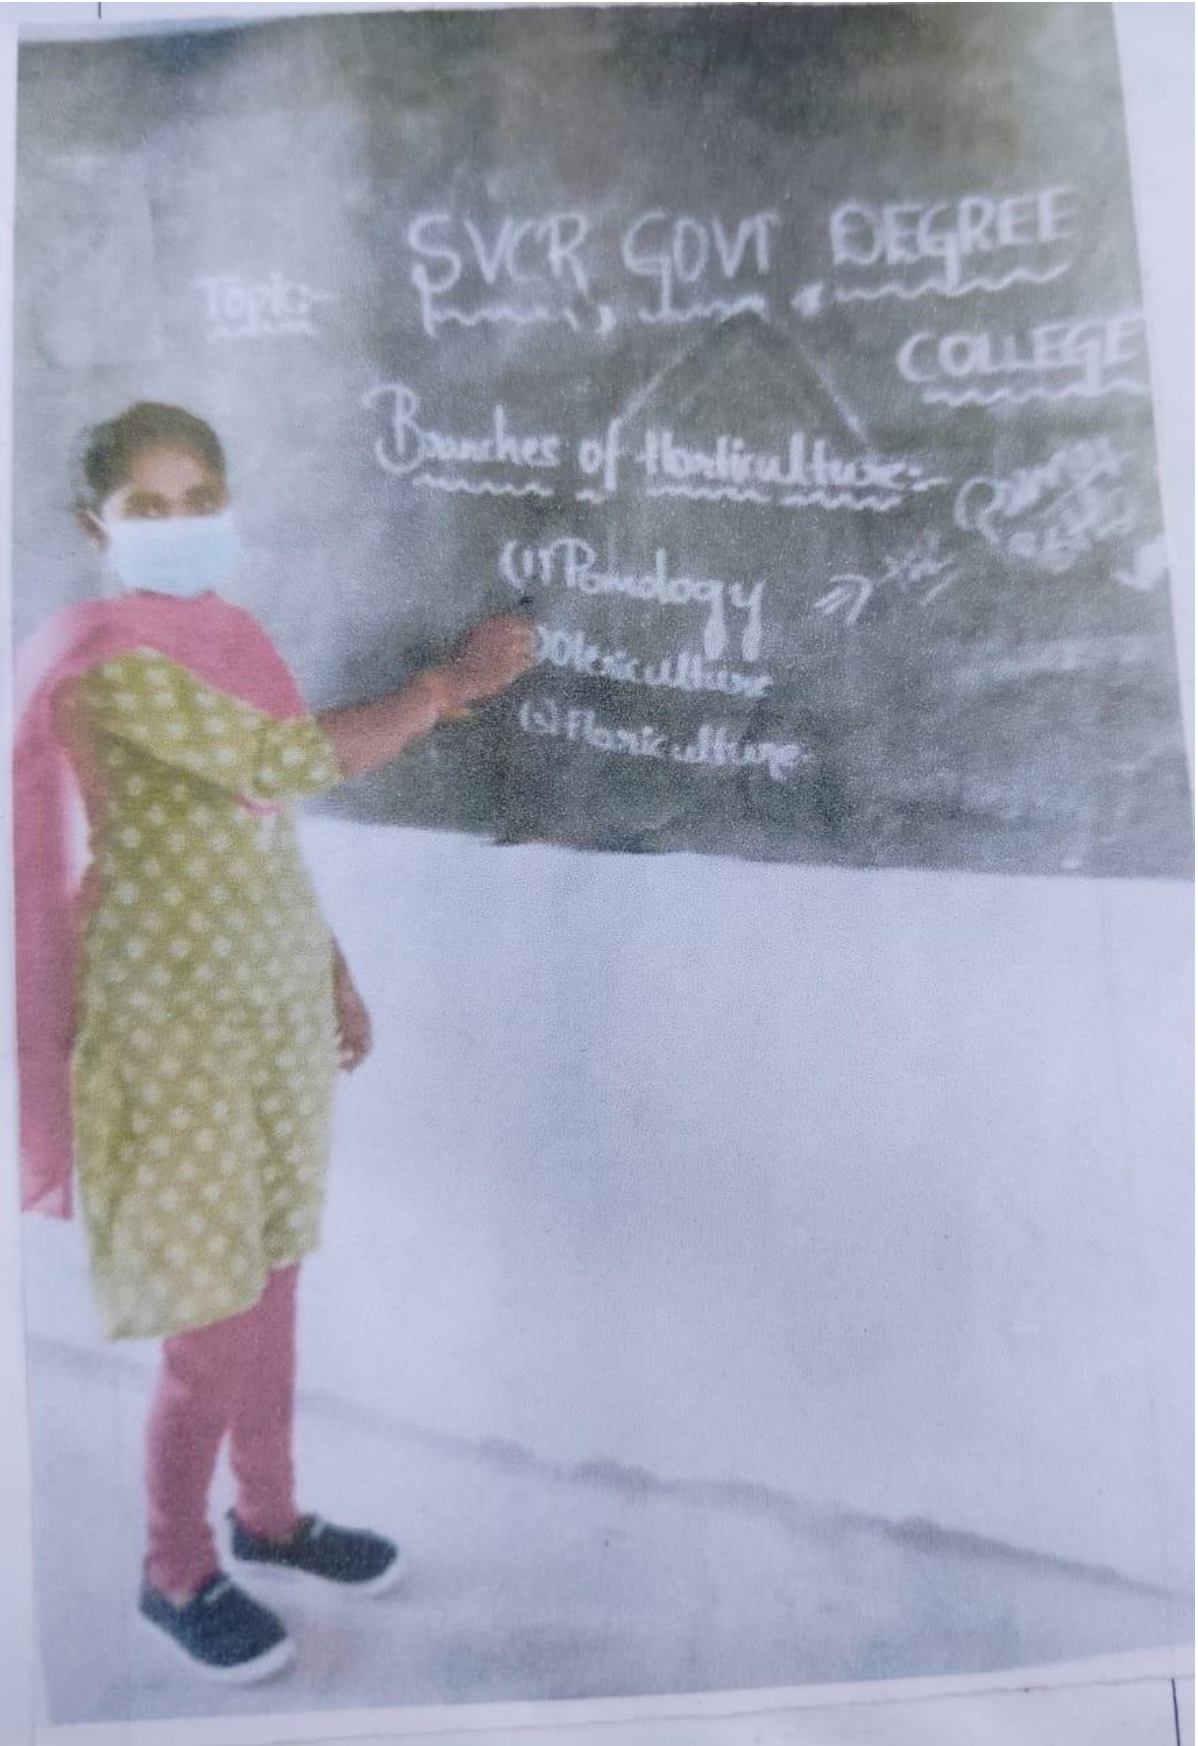 SVCR GOVT DEGREE
COLLEGE
Topic:-
Branches of Horticulture:-
(1) Pomology
Olericulture
(3) Floriculture